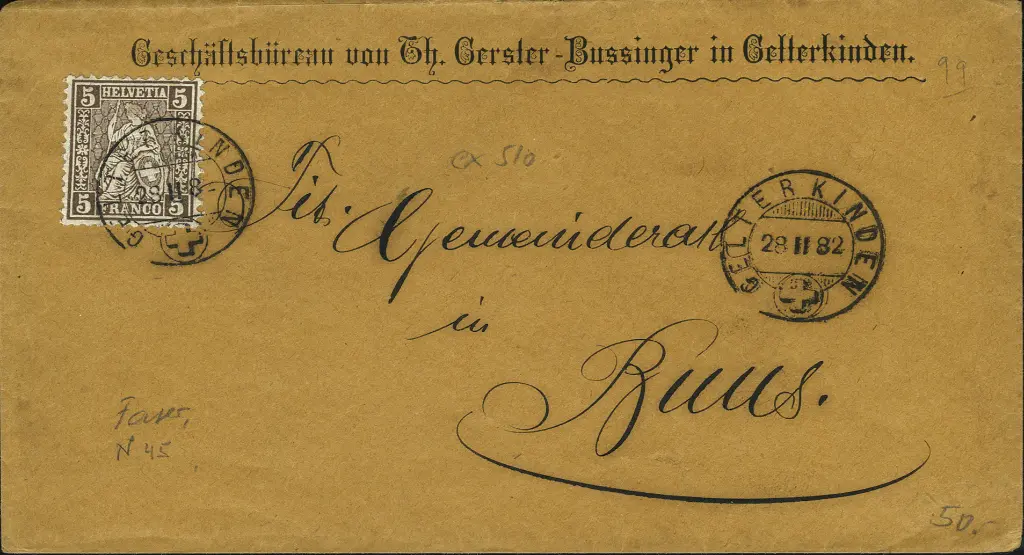 Geschäftsbüreau von Th. Gerster-Bussinger in Gelterkinden.
99
5 HELVETIA 5
5 FRANCO 5
GELTERKINDEN
28 II 8
ex 510
Tit. Gemeinderath
GELTERKINDEN
28 II 82
in
Buus.
Faser,
N 45
50.-